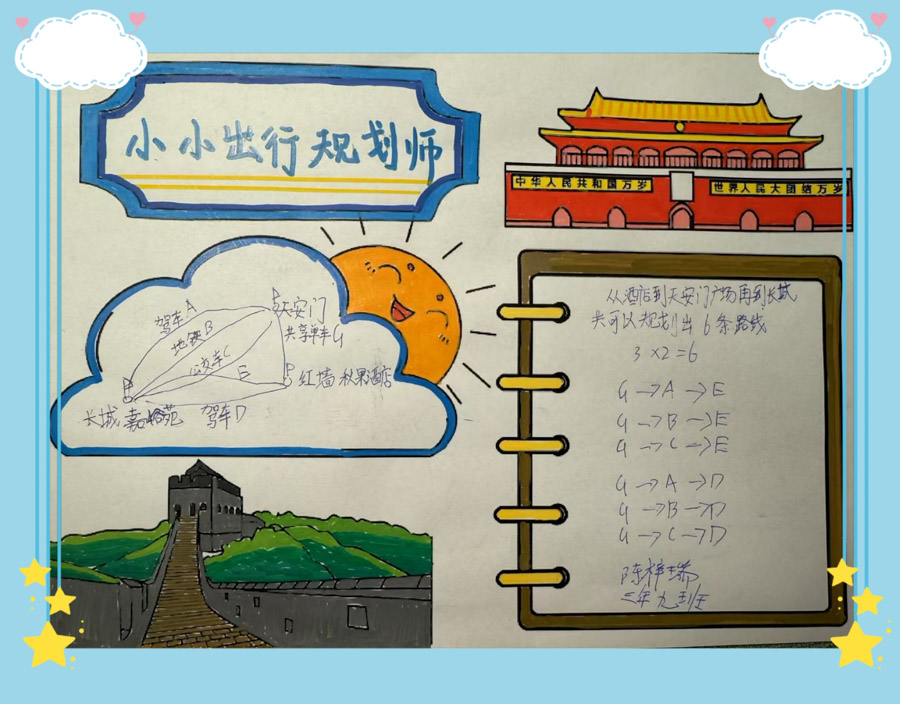 小小出行规划师
中华人民共和国万岁
世界人民大团结万岁
天安门
驾车A
地铁B
公交车C
共享单车G
E
红墙秋果酒店
长城
驾车D
从酒店到天安门广场再到长城
共可以规划出6条路线
3×2=6
G→A→E
G→B→E
G→C→E
G→A→D
G→B→D
G→C→D
陈梓瑞
三年九班